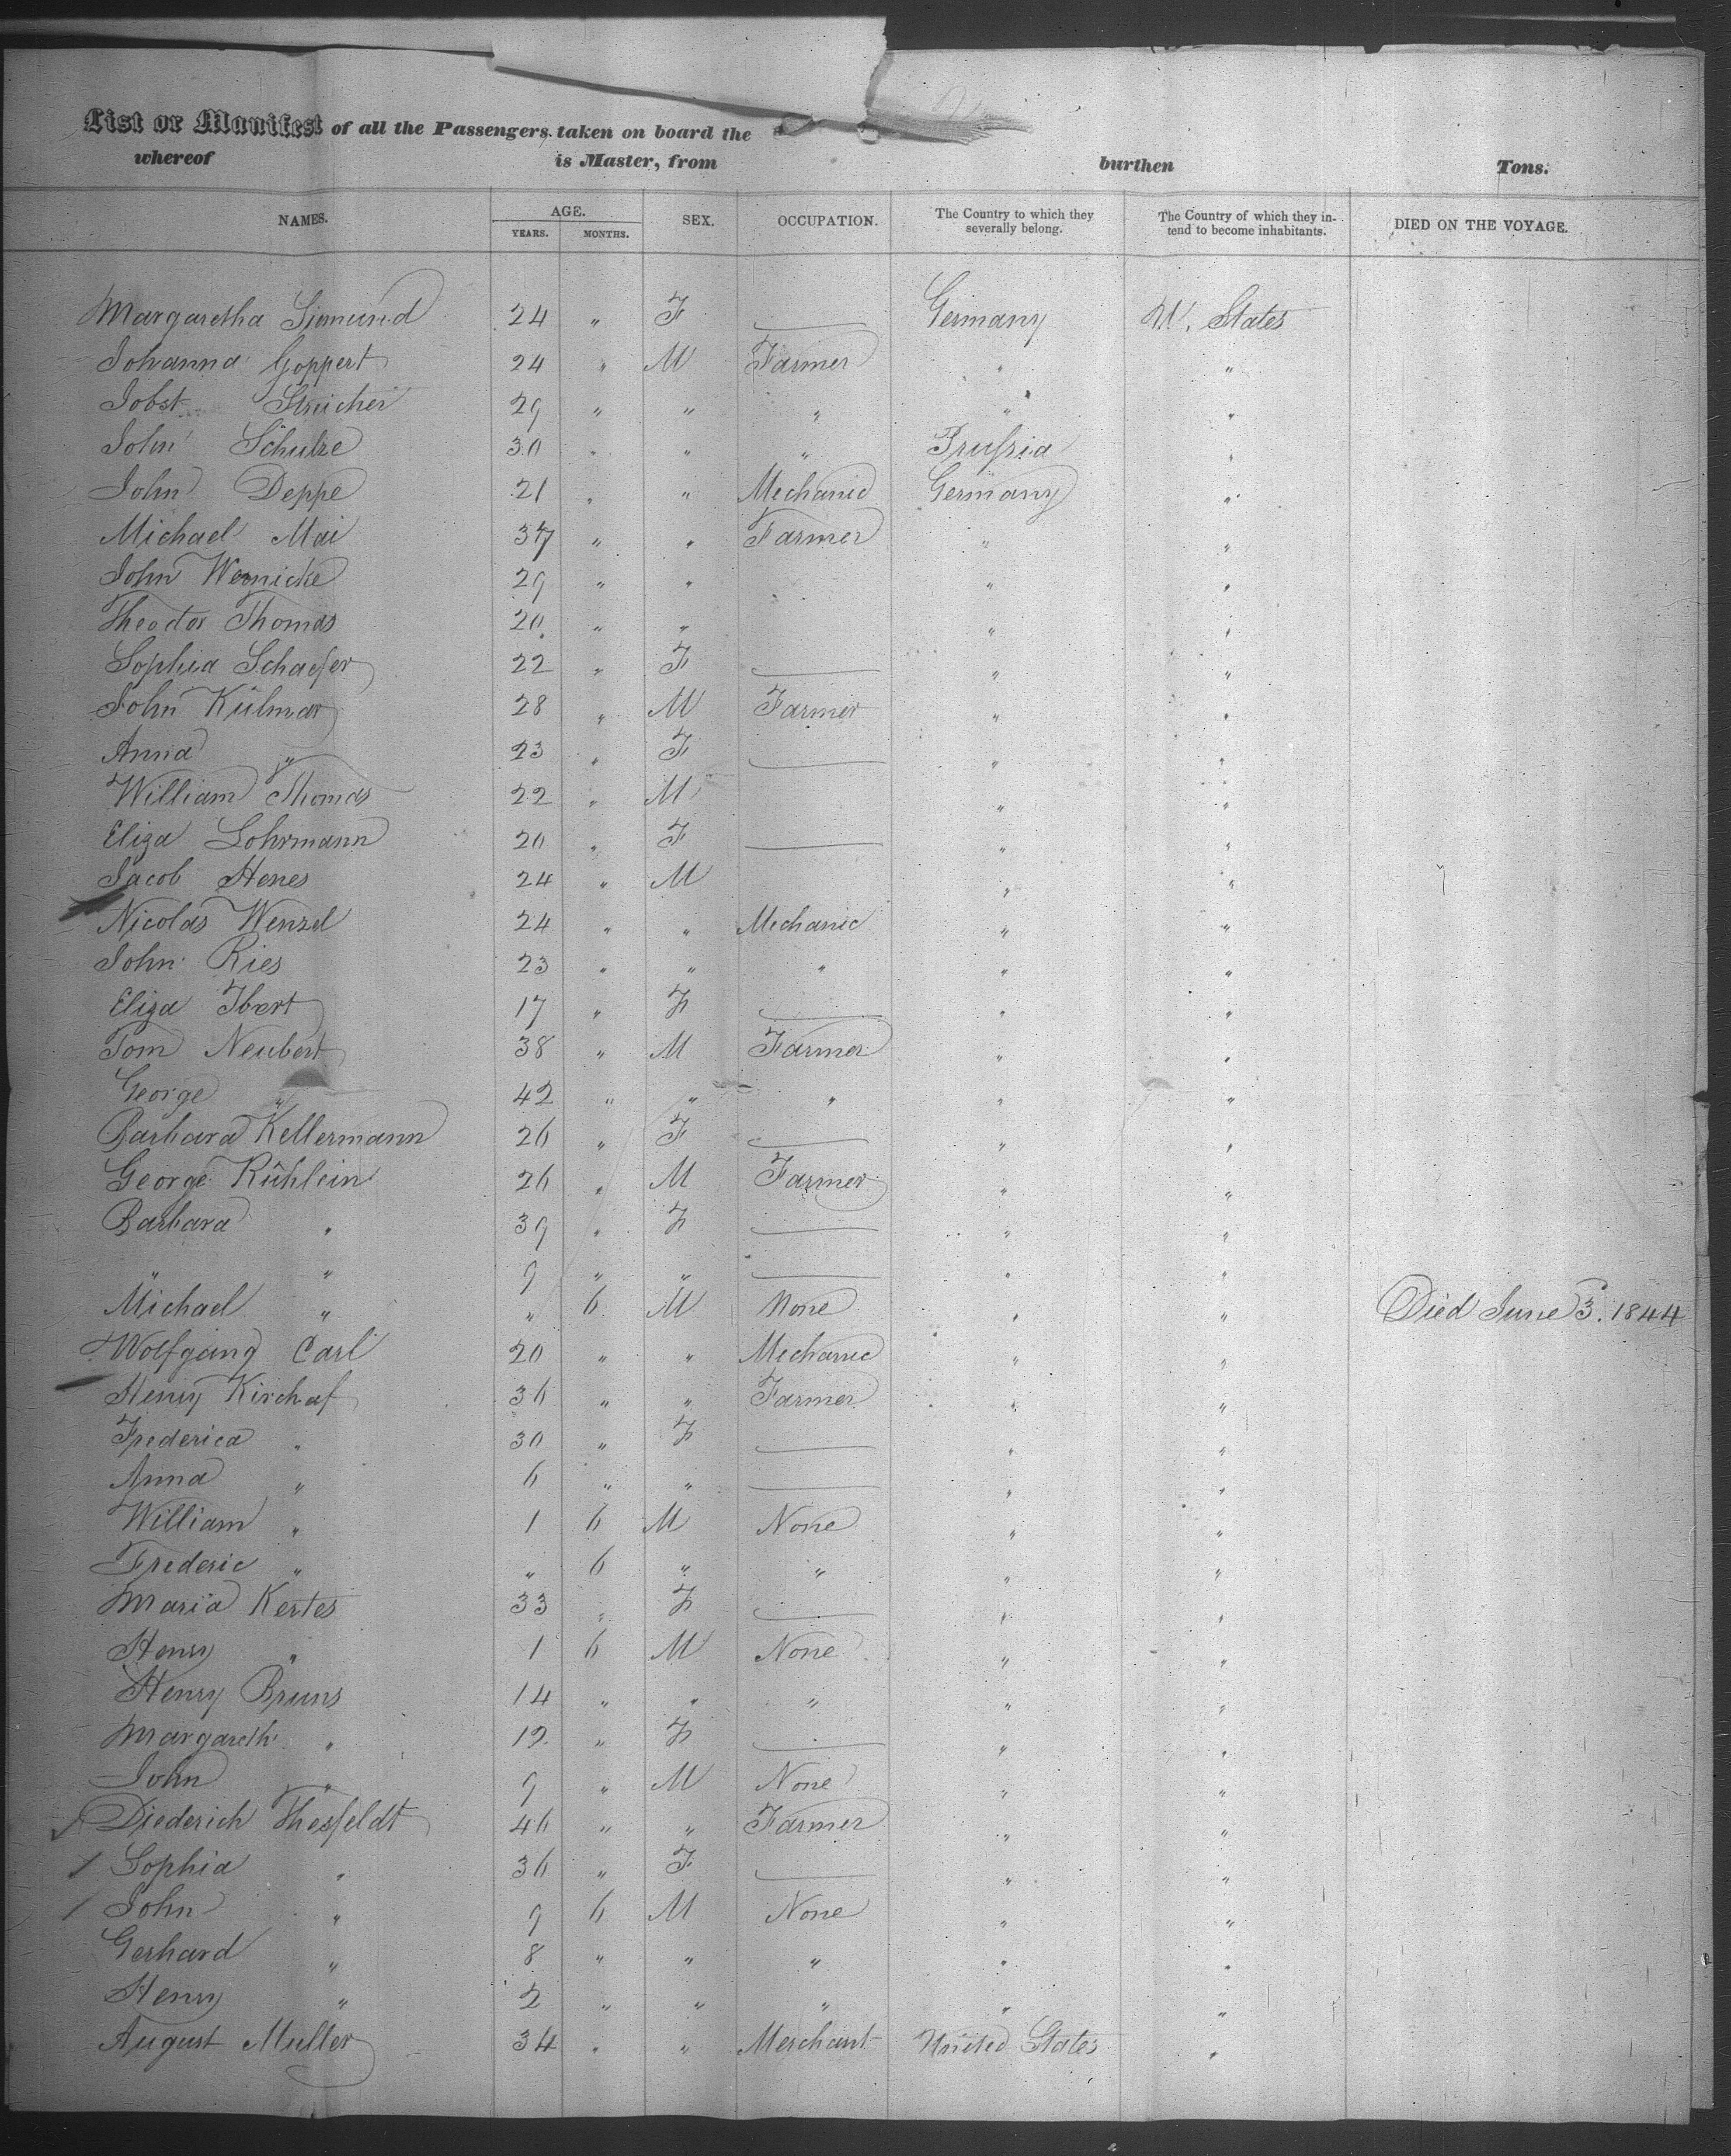 List or Manifest of all the Passengers taken on board the
whereof is Master, from burthen Tons.
NAMES. AGE. YEARS. MONTHS. SEX. OCCUPATION. The Country to which they severally belong. The Country of which they intend to become inhabitants. DIED ON THE VOYAGE.
Margaretha Sigmund 24 " F — Germany U. States
Johanna Goppert 24 " M Farmer " "
Jobst Streicher 29 " " " " "
John Schulze 30 " " " Prussia "
John Deppe 21 " " Mechanic Germany "
Michael Mai 37 " " Farmer " "
John Wernicke 29 " " " "
Theodor Thomas 20 " " " "
Sophia Schaefer 22 " F — " "
John Külmar 28 " M Farmer " "
Anna " 23 " F — " "
William Thomas 22 " M " "
Eliza Lohrmann 20 " F — " "
Jacob Henes 24 " M " "
Nicolas Wenzel 24 " " Mechanic " "
John Ries 23 " " " " "
Eliza Ibert 17 " F — " "
Tom Neubert 38 " M Farmer " "
George " 42 " " " " "
Barbara Kellermann 26 " F — " "
George Kühlein 26 " M Farmer " "
Barbara " 39 " F — " "
" " 9 " " — " "
Michael " " 6 M None " " Died June 3. 1844
Wolfgang Carl 20 " " Mechanic " "
Henry Kirchhof 36 " " Farmer " "
Frederica " 30 " F — " "
Anna " 6 " " — " "
William " 1 6 M None " "
Frederic " " 6 " " " "
Maria Kertes 33 " F — " "
Henry " 1 6 M None " "
Henry Bruns 14 " " " " "
Margareth " 12 " F — " "
John " 9 " M None " "
Diederich Thesfeldt 46 " " Farmer " "
Sophia " 36 " F — " "
John " 9 6 M None " "
Gerhard " 8 " " " " "
Henry " 2 " " " " "
August Muller 34 " " Merchant United States "